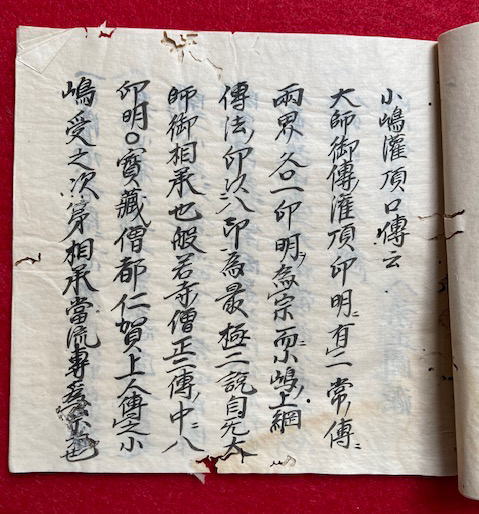 小嶋灌頂口傳云
大師御傳灌頂印明有二常傳
兩界各一印明為宗而小嶋上綱
傳法印以八印為最極二說自元大
師御相承也般若寺僧正二傳中八
印明〇寶藏僧都仁賀上人傳之小
嶋受之次第相承當流專為也